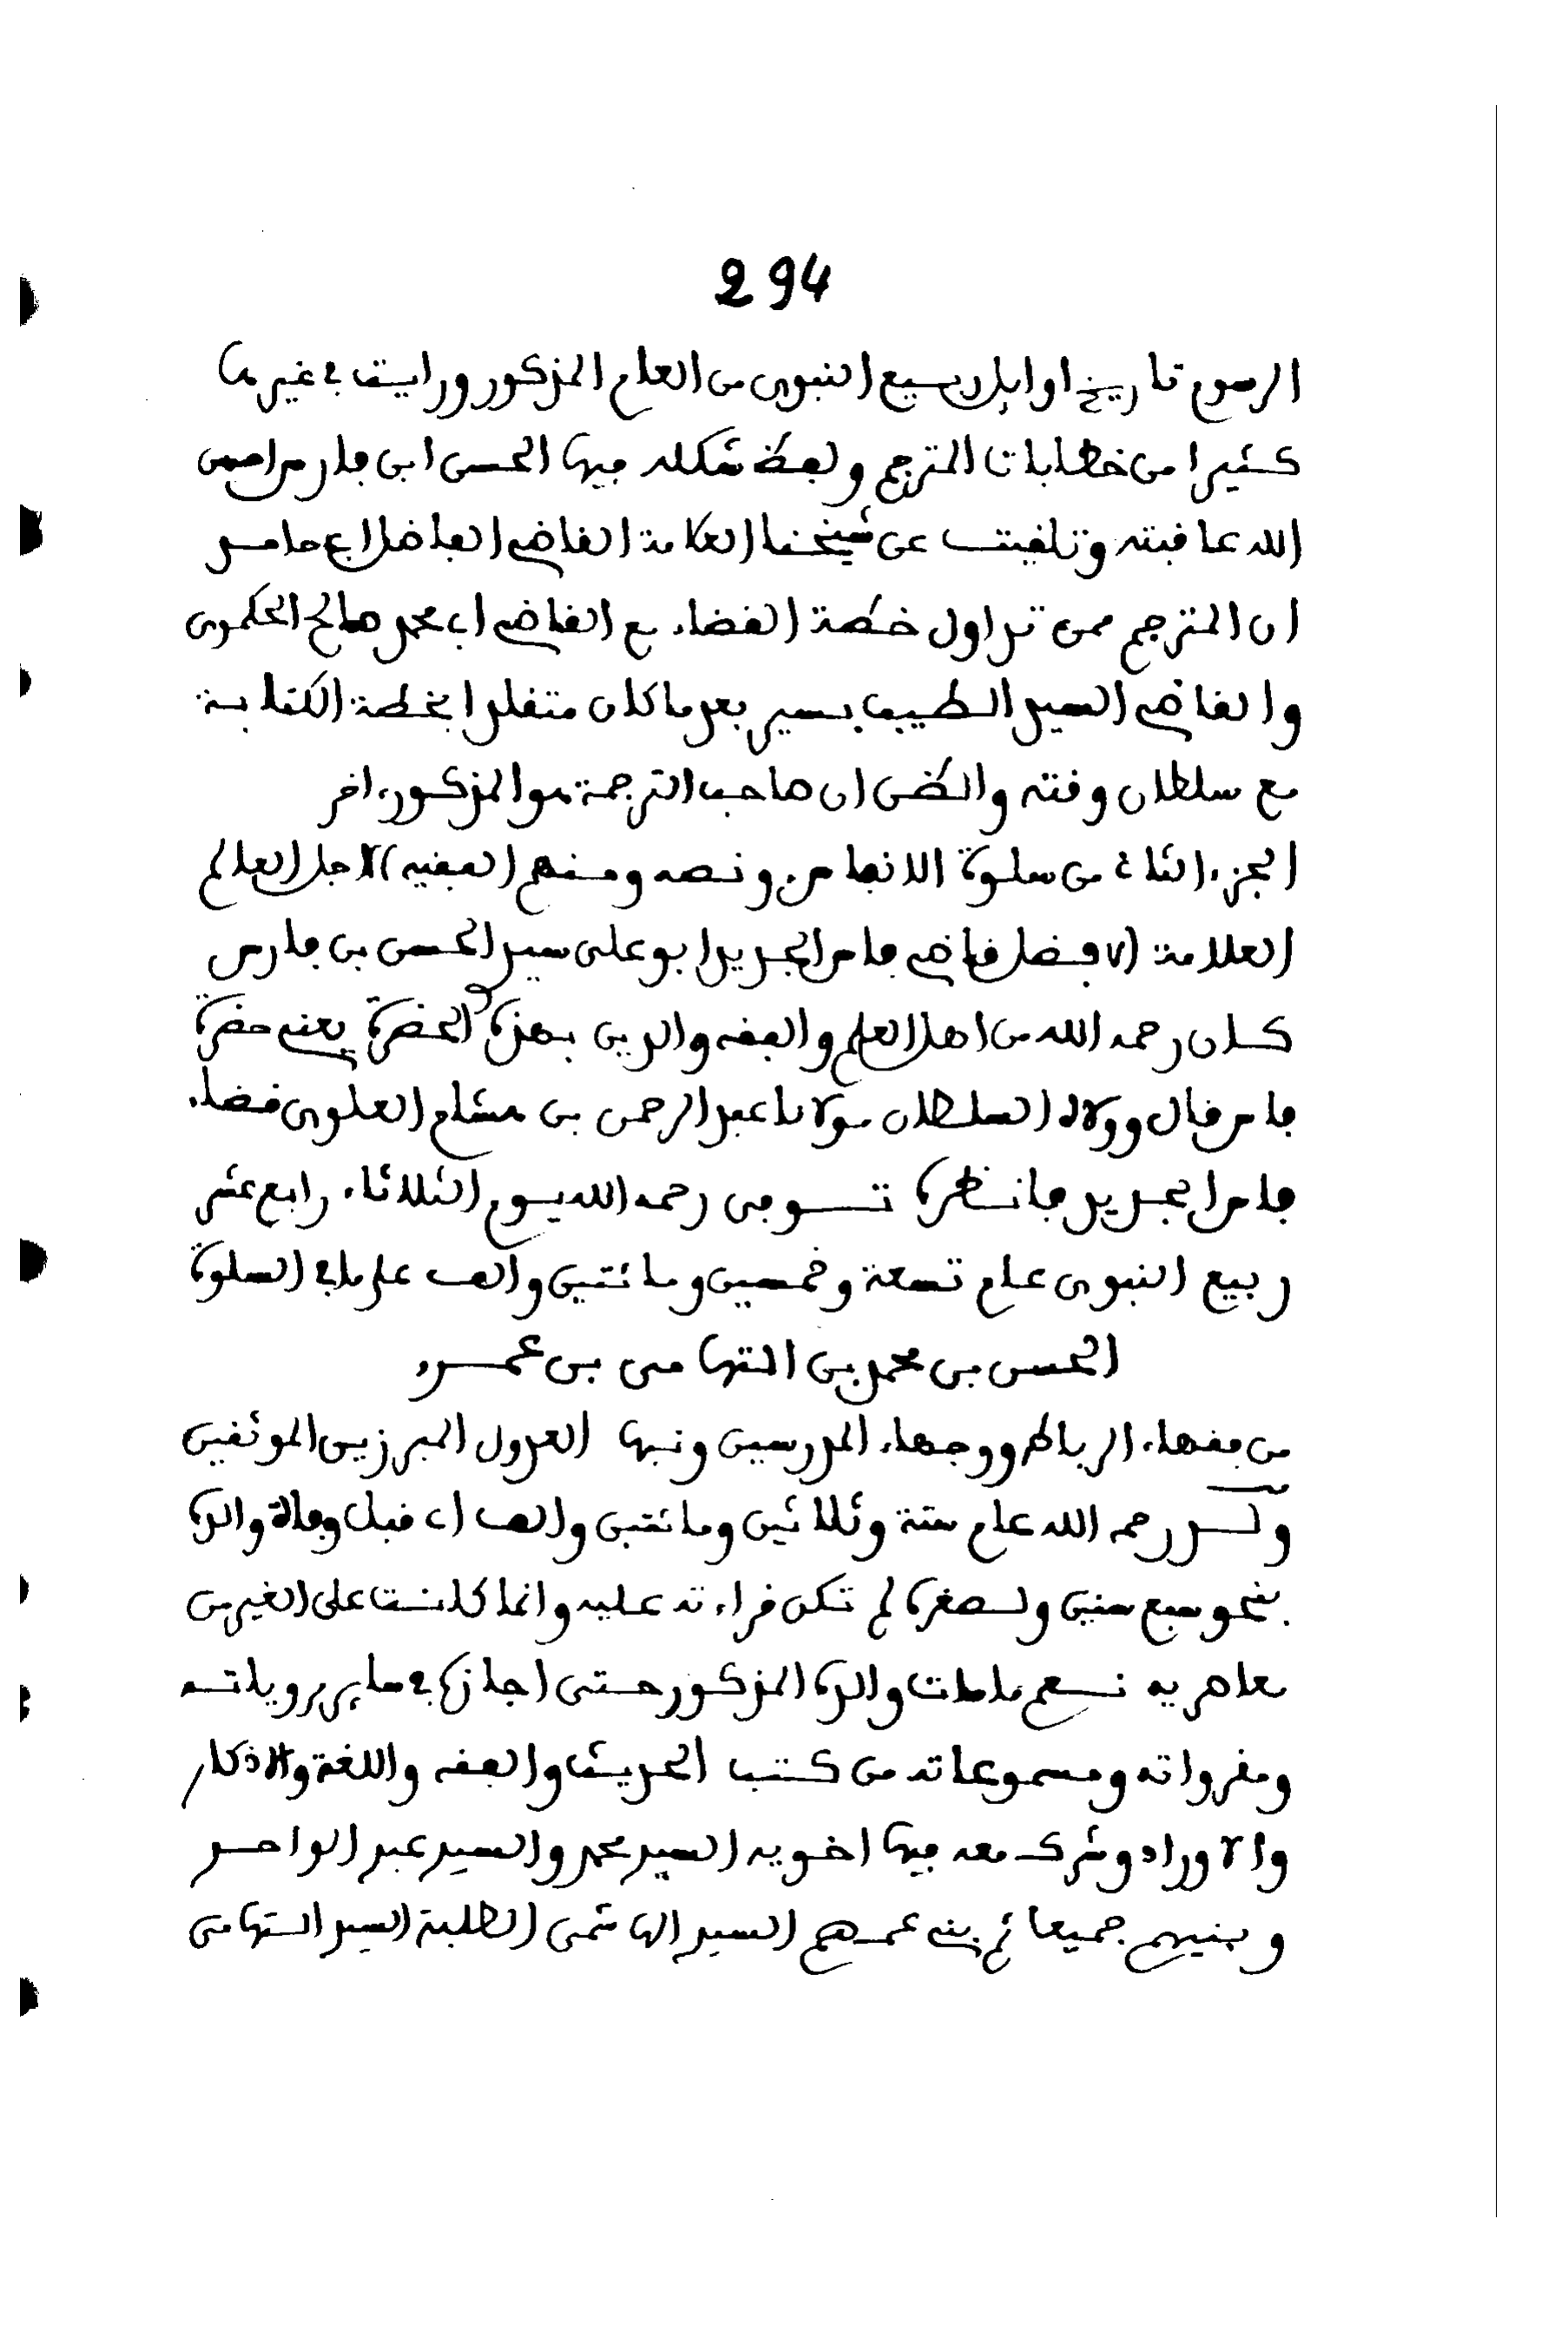 294
الرسوم تاريخ اوايل ربيع النبوى من العام المذكور ورايت في غيرها
كثيرا من خطابات المترجم ولفظ شكله فيها الحسن ابن فارس احسن
الله عاقبته وتلقيت عن شيخنا العلامة القاضى الفاضل ابي حامد
ان المترجم ممن تداول خطة القضاء مع القاضى ابي محمد صالح الحكموى
والقاضى السيد الطيب بسير بعد ما كان متقلدا بخطة الكتابة
مع سلطان وقته والظن ان صاحب الترجمة هو المذكور ءاخر
الجزء الثاني من سلوة الانفاس ونصه ومنهم الفقيه الاجل العالم
العلامة الافضل قاضى فاس الجديد ابو على سيد الحسن بن فارس
كان رحمه الله من اهل العلم والفقه والدين بهذه الحضرة يعني حضرة
فاس قال وولاه السلطان مولانا عبد الرحمن بن هشام العلوى قضاء
فاس الجديد فانظره توفى رحمه الله يوم الثلاثاء رابع عشر
ربيع النبوى عام تسعة وخمسين ومائتين والف على ما في السلوة
الحسن بن محمد بن التهامى بن عمرو
من فقهاء الرباط ووجهاء المدرسين ونبها العدول المبرزين الموثقين
ولد رحمه الله عام ستة وثلاثين ومائتين والف اي قبل وفاة والده
بنحو سبع سنين ولصغره لم تكن قراءته عليه وانما كانت على الغير من
معاصريه نعم ما مات والده المذكور حتى اجازه في ساير مروياته
ومقرواته ومسموعاته من كتب الحديث والفقه واللغة والاذكار
والاوراد وشرك معه فيها اخويه السيد محمد والسيد عبد الواحد
وبنيهم جميعا ثم بني عمهم السيد الهاشمى الطلبة السيد التهامى